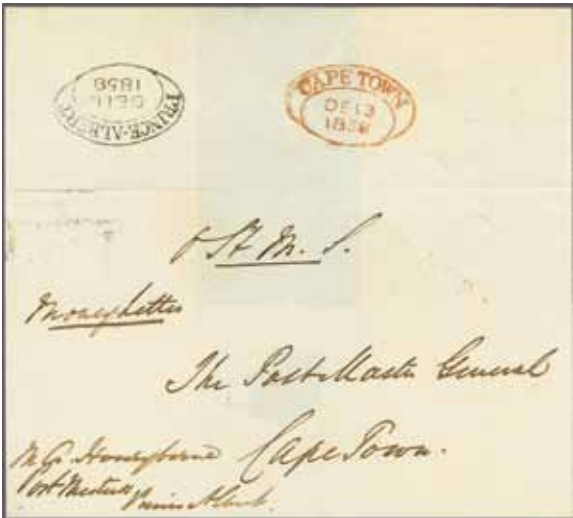 PRINCE-ALBERT
DE 10
1858
CAPE TOWN
DE 13
1858
St M. S.
Money Letter
The Post Master General
Cape Town.
Honeyborne
Post Master
Prince Albert.